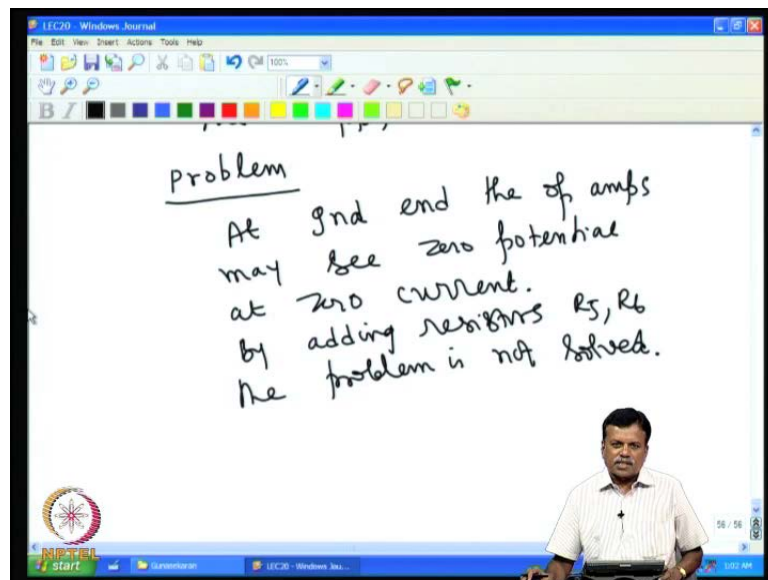 LEC20 - Windows Journal
File Edit View Insert Actions Tools Help
100%
B I
Problem
At gnd end the op amps
may see zero potential
at zero current.
by adding resistors R5, R6
the problem is not solved.
56 / 56
NPTEL
start Gunasekaran LEC20 - Windows Jou... 1:02 AM